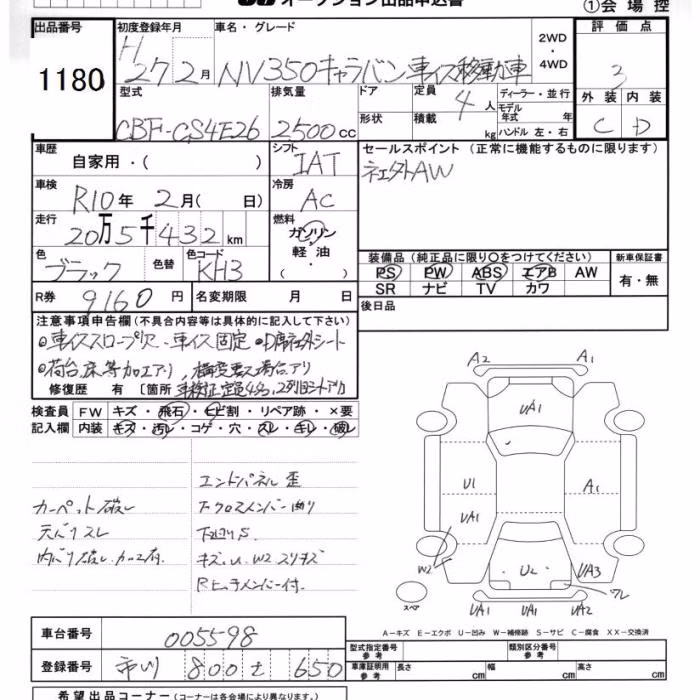 オークション出品申込書
①会場控
出品番号 初度登録年月 車名・グレード 評価点
1180 H 27 2月 NV350キャラバン 車イス移動車 2WD・4WD 3
型式 排気量 ドア 定員 ディーラー・並行 外装 内装
CBF-CS4E26 2500cc 形状 積載 4人 kg モデル年式 年 ハンドル 左・右 C D
車歴 自家用・( ) シフト IAT セールスポイント (正常に機能するものに限ります)
車検 R10年 2月( 日) 冷房 AC 社外AW
走行 20万5千432km 燃料 ガソリン・軽油・( )
色 ブラック 色替 色コード KH3
装備品 (純正品に限り○をつけてください) 新車保証書
PS PW ABS エアB AW 有・無
SR ナビ TV カワ
R券 9160円 名変期限 月 日 後日品
注意事項申告欄 (不具合内容等は具体的に記入して下さい)
車イススロープ 車イス固定 D席社外シート
荷台、床等加工アリ
修復歴 有 [箇所 車検証定員4名、2列目シートアリ
検査員 FW キズ・飛石・ヒビ割・リペア跡・×要
記入欄 内装 キズ・汚レ・コゲ・穴・スレ・キレ・破レ
エンドパネル歪
カーペット破レ クロスメンバー曲り
天バリスレ 下回りS
内バリ破レ キズ.U.W2.スリキズ
Rヒッチメンバー付.
A2 A1
UA1
U1 A1
UA1
W2 U2 UA3
ワレ
スペア UA1 UA1 UA2
A-キズ E-エクボ U-凹み W-補修跡 S-サビ C-腐食 XX-交換済
車台番号 005598
型式指定番号 参考 類別区分番号 参考
登録番号 市川 800 せ 650
車庫証明用 参考 長さ cm 幅 cm 高さ cm
希望出品コーナー (コーナーは各会場により異なります。)